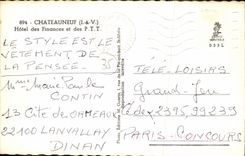 894 - CHATEAUNEUF (I.-&-V.)
Hôtel des Finances et des P.T.T.
LE STYLE EST LE
VETEMENT DE LA
PENSÉE. 35
Mme Marie Paule
CONTIN
13 Cité de ORMEAUX
22100 LANVALLAY
DINAN
TÉLÉ-LOISIRS
Grand-Jeu
de 2395.99239
PARIS-CONCOURS